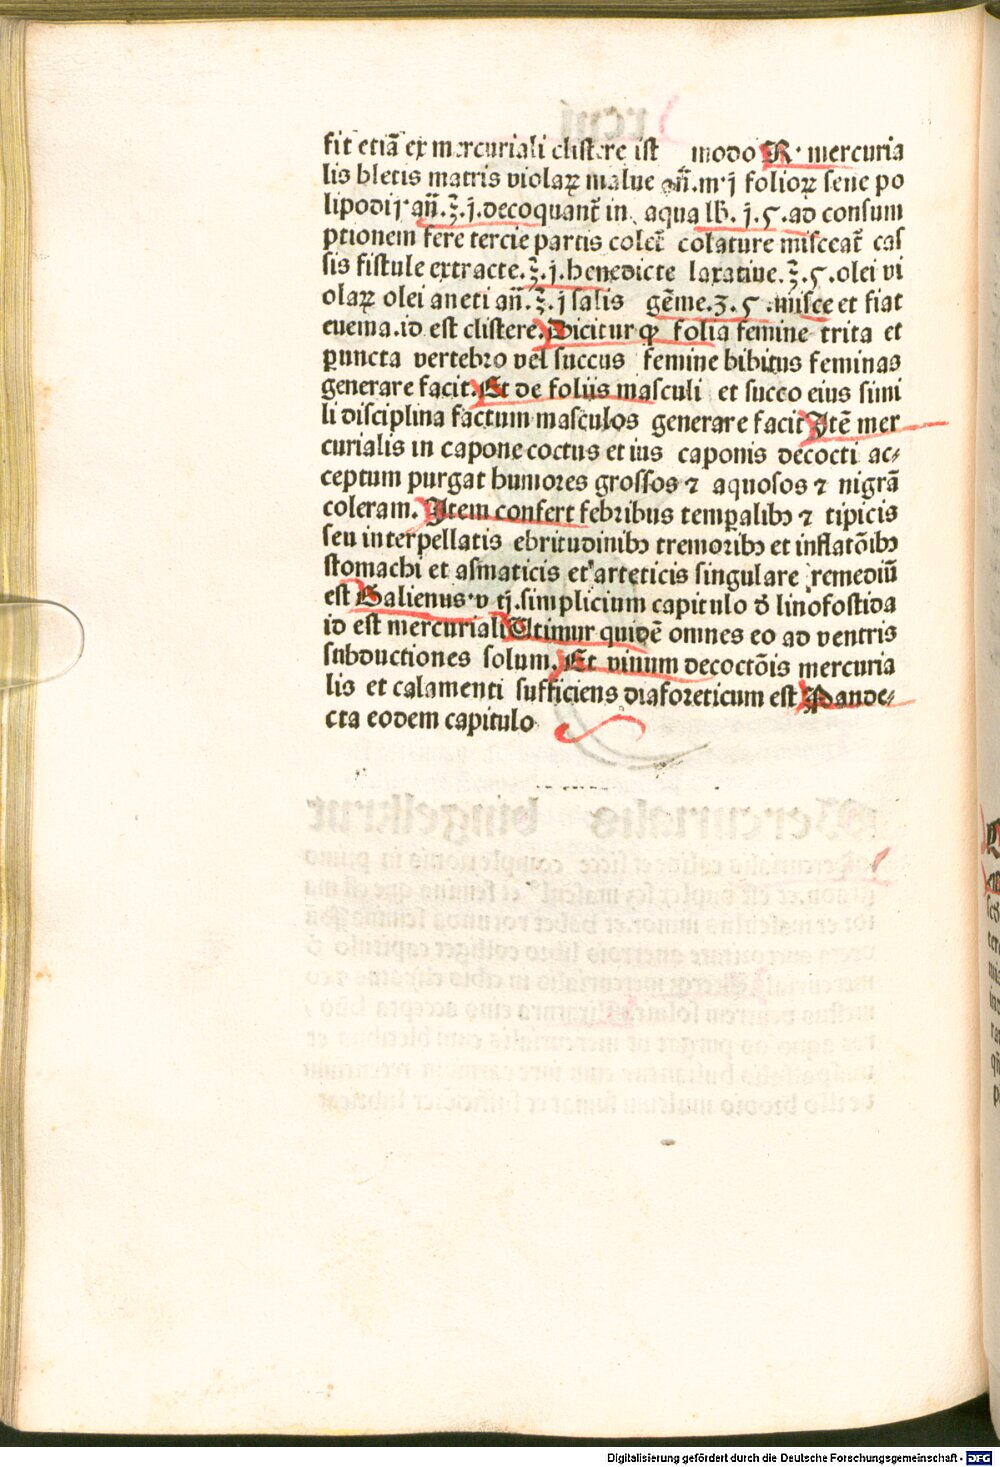 fit etiã ex mercuriali clistere ist modo R· mercuria
lis bletis matris violaꝝ malue añ.m·j folioꝝ sene po
lipodij·añ.ʒ.j.decoquant̃ in aqua lb. j.ς.ad consum
ptionem fere tercie partis colet̃ colature misceat̃ cas
sis fistule extracte.ʒ.j.benedicte laxatiue.ʒ.ς.olei vi
olaꝝ olei aneti añ.ʒ.j salis gẽme.ʒ.ς.misce et fiat
euema.id est clistere.Dicitur ꝙ folia femine trita et
puncta vertebro vel succus femine bibitus feminas
generare facit.Et de foliis masculi et succo eius simi
li disciplina factum masculos generare facit Itẽ mer
curialis in capone coctus et ius caponis decocti ac⸗
ceptum purgat humores grossos ⁊ aquosos ⁊ nigrã
coleram.Item confert febribus temꝑalibꝫ ⁊ tipicis
seu interpellatis ebritudinibꝫ tremoribꝫ et inflatõibꝫ
stomachi et asmaticis et arteticis singulare remediũ
est Galienus·v ij.simplicium capitulo đ linofostida
id est mercuriali Utimur quidẽ omnes eo ad ventris
subductiones solum.Et vinum decoctõis mercuria
lis et calamenti sufficiens diaforeticum est Pande⸗
cta eodem capitulo
Digitalisierung gefördert durch die Deutsche Forschungsgemeinschaft - DFG